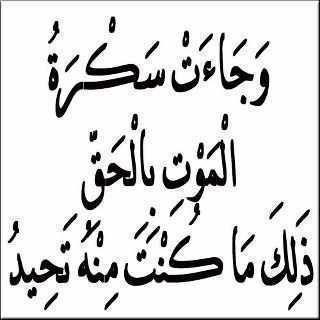 وَجَاءَتْ سَكْرَةُ
الْمَوْتِ بِالْحَقِّ
ذَلِكَ مَا كُنْتَ مِنْهُ تَحِيدُ